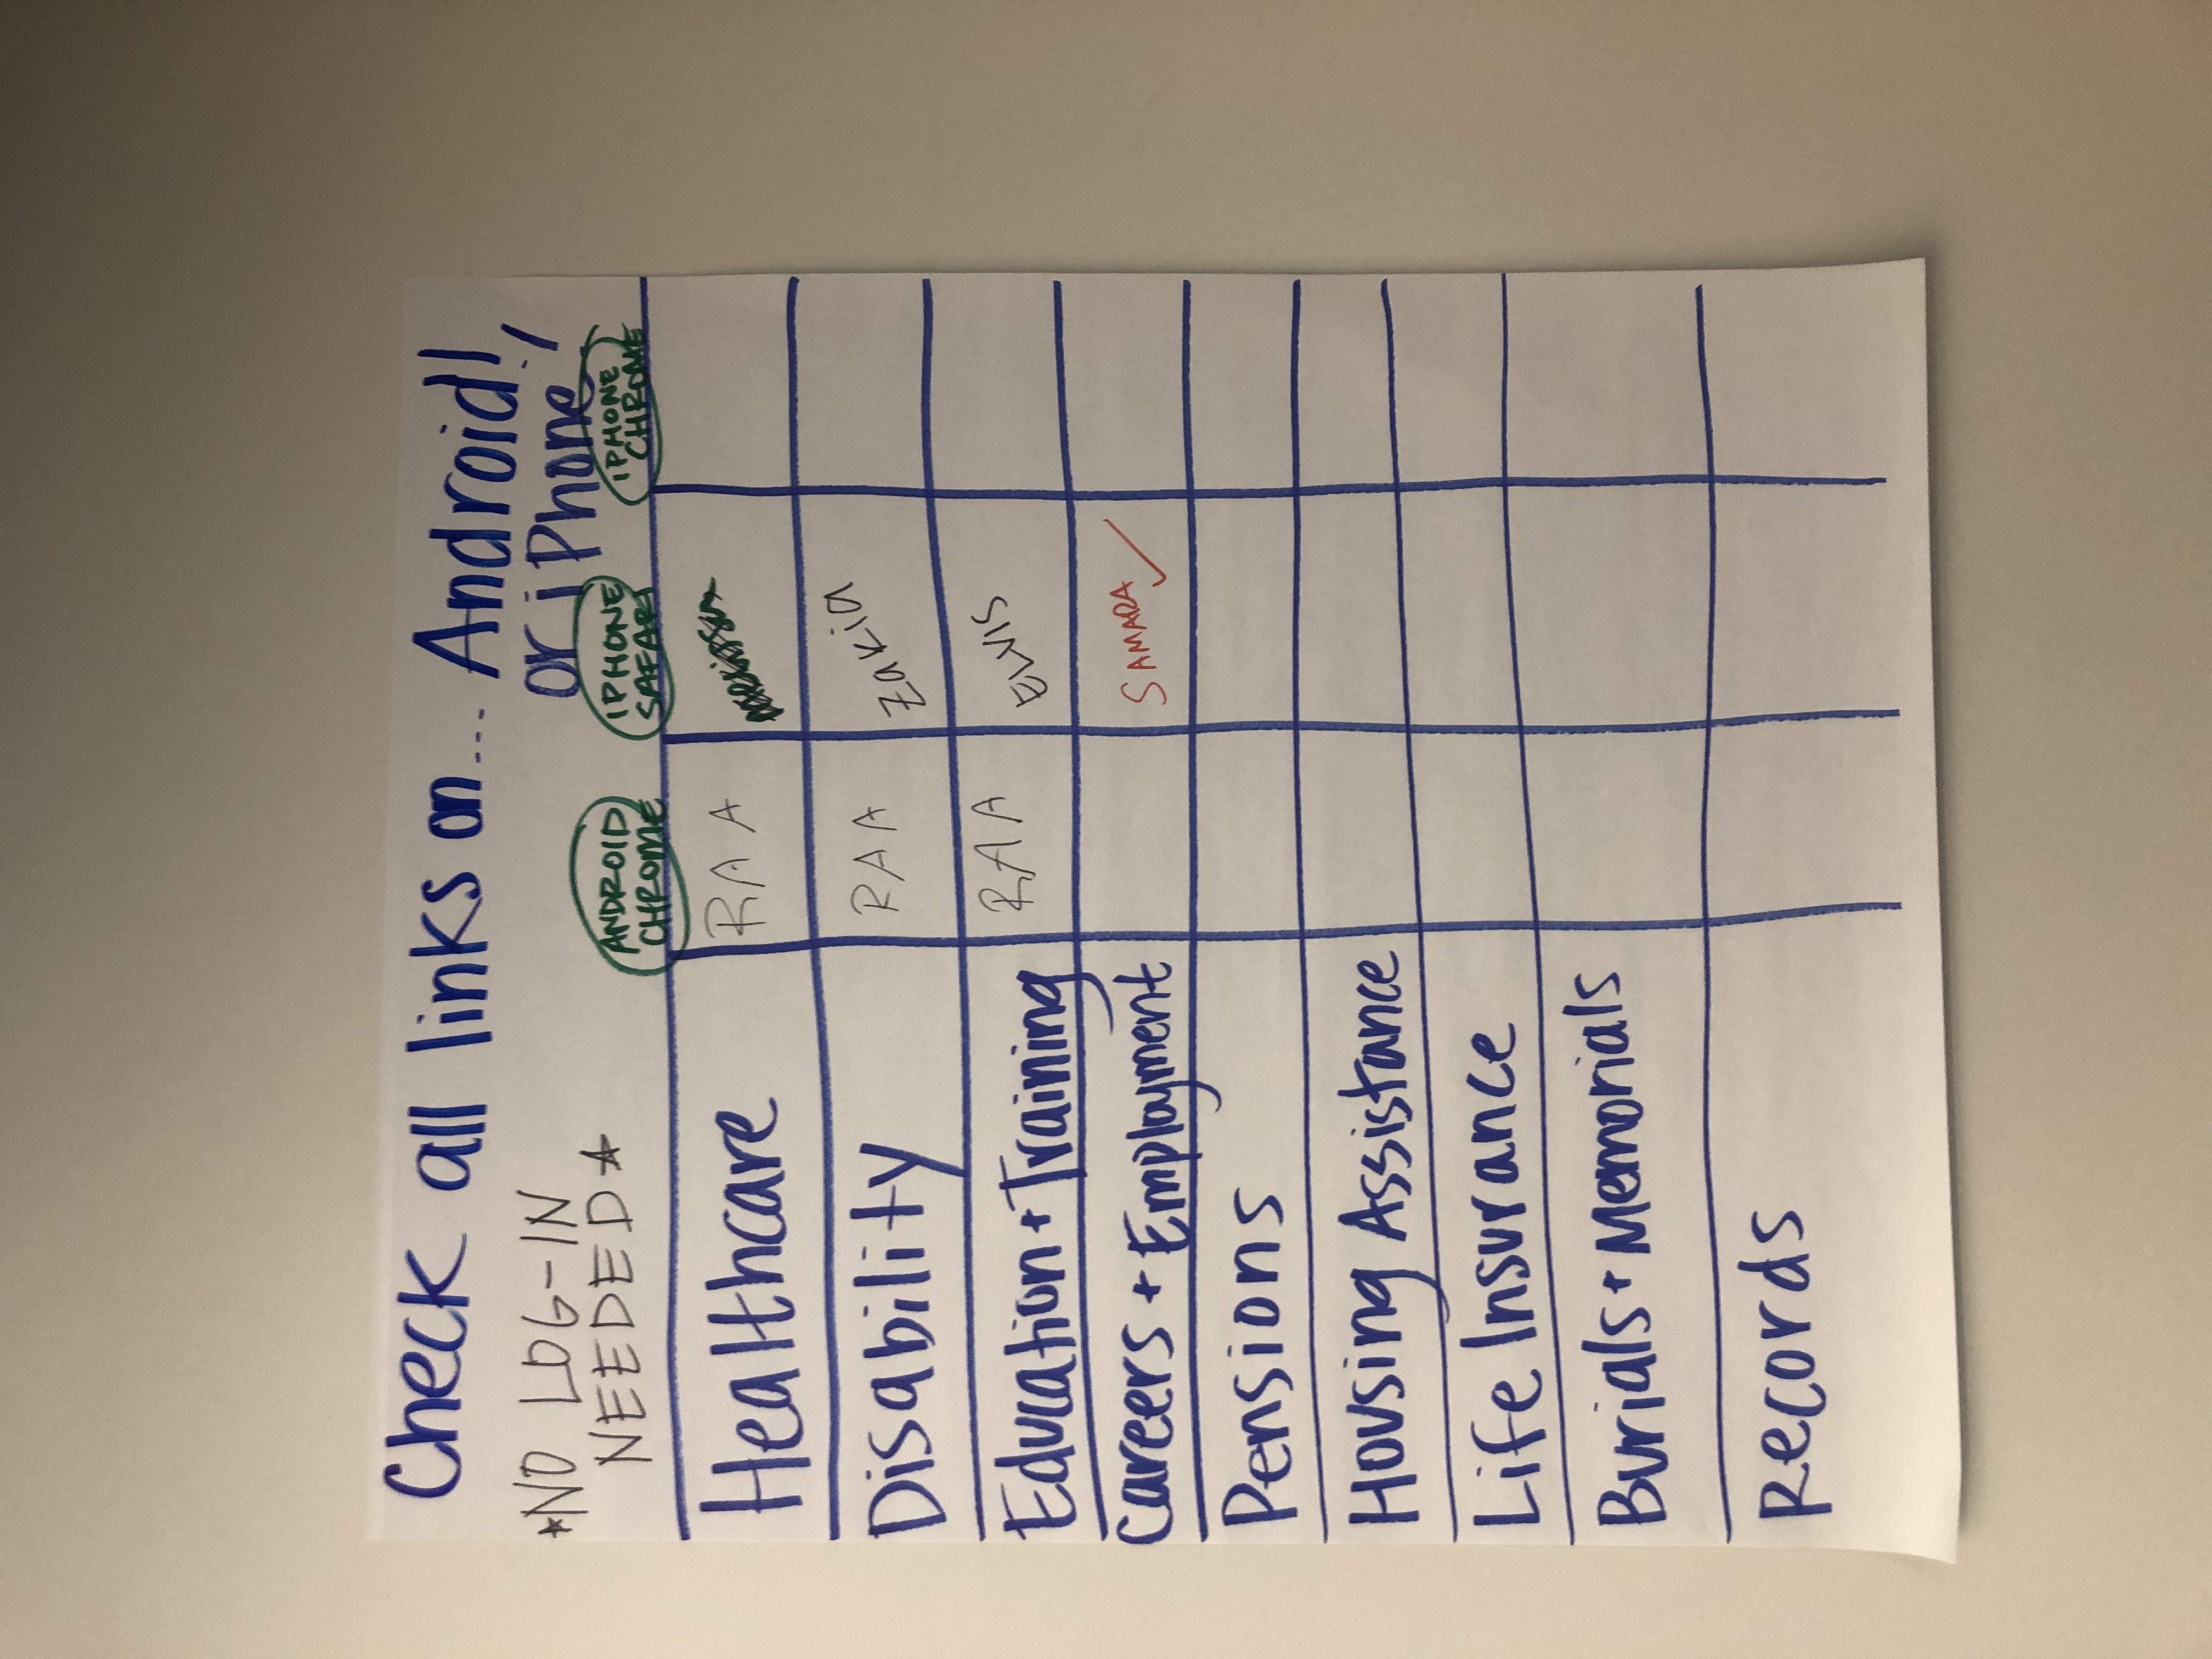 Check all links on... Android!,
or iPhone!
*NO LOG-IN
NEEDED*
ANDROID
CHROME
IPHONE
SAFARI
IPHONE
CHROME
Healthcare RAA
Disability RAA Zakia
Education + Training RAA ELVIS
Careers + Employment SAMARA ✓
Pensions
Housing Assistance
Life Insurance
Burials + Memorials
Records